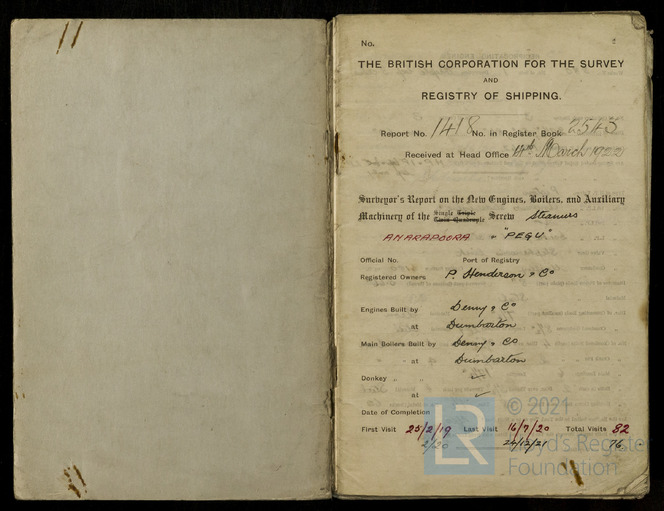 11
No.
THE BRITISH CORPORATION FOR THE SURVEY
AND
REGISTRY OF SHIPPING.
Report No. 1418 No. in Register Book 2545
Received at Head Office 14th March 1922
Surveyor's Report on the New Engines, Boilers, and Auxiliary
Single Triple
Machinery of the Twin Quadruple Screw Steamers
AMARAPOORA & "PEGU"
Official No. Port of Registry
Registered Owners P. Henderson & Co
Engines Built by Denny & Co
at Dumbarton
Main Boilers Built by Denny & Co
" at Dumbarton
Donkey " "
at ✓
Date of Completion
First Visit 25/2/19 Last Visit 16/7/20 Total Visits 82
2/20 20/12/21 76
LR © 2021
Lloyd's Register
Foundation